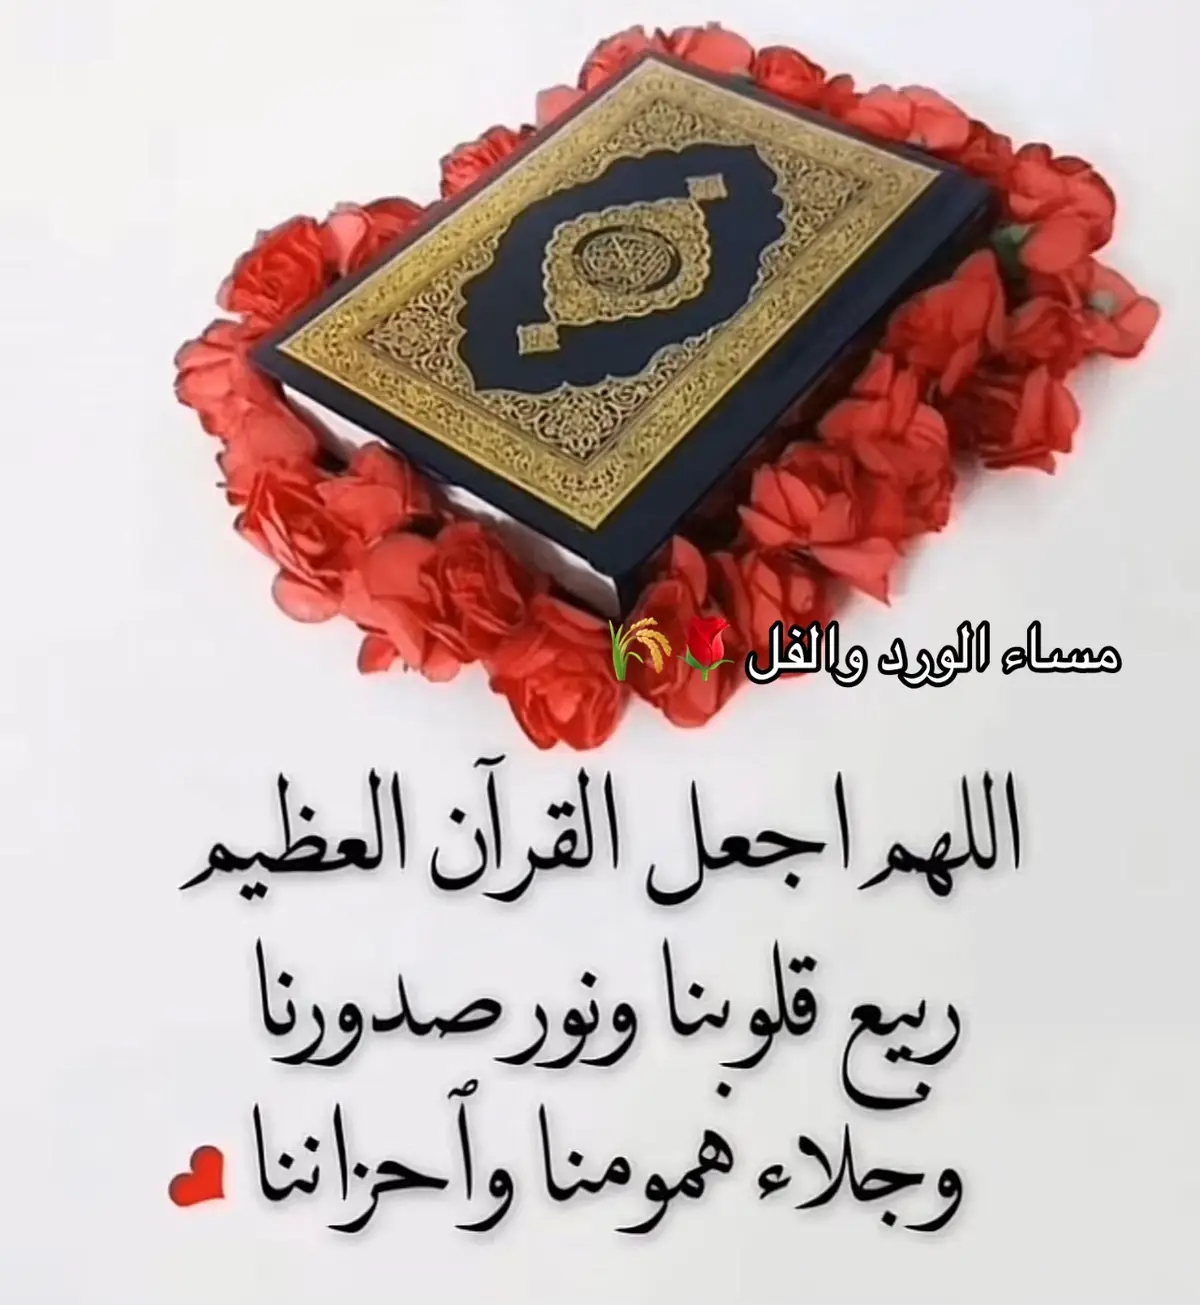 مساء الورد والفل 🌹🌾
اللهم اجعل القرآن العظيم
ربيع قلوبنا ونور صدورنا
وجلاء همومنا وٱحزاننا ❤